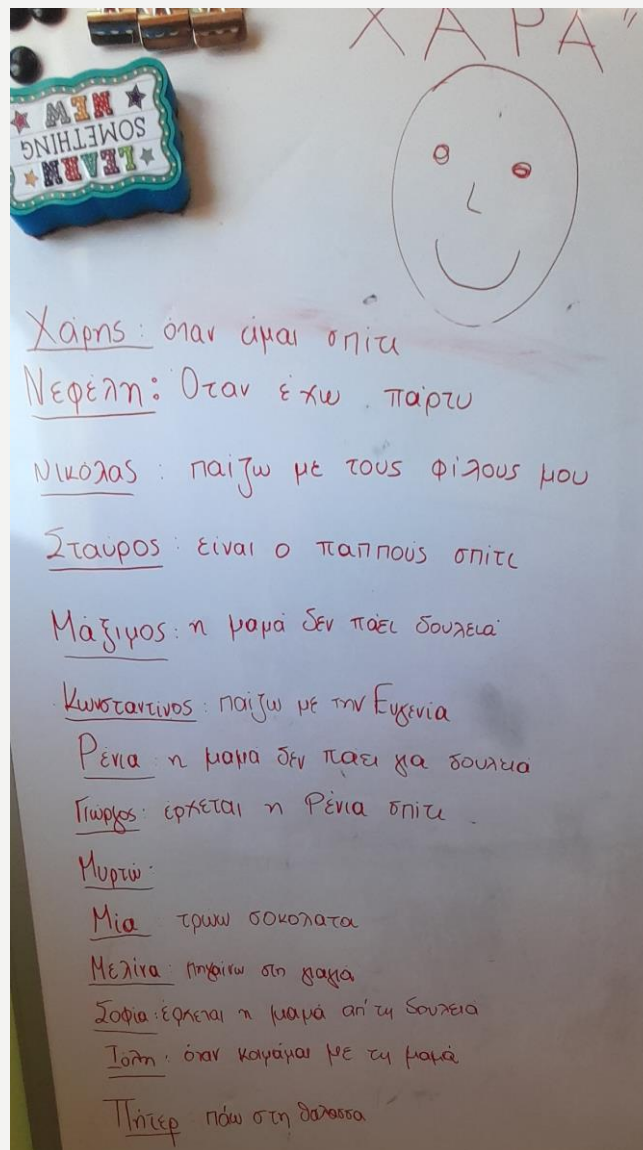 ΧΑΡΑ"
LEARN
SOMETHING
NEW
Χάρης: όταν είμαι σπίτι
Νεφέλη: Όταν έχω πάρτυ
Νικόλας: παίζω με τους φίλους μου
Σταύρος: είναι ο παππούς σπίτι
Μάξιμος: η μαμά δεν πάει δουλειά
Κωνσταντίνος: παίζω με την Ευγενία
Ρένια: η μαμά δεν πάει για δουλειά
Γιώργος: έρχεται η Ρένια σπίτι.
Μυρτώ:
Μία τρωω σοκολατα
Μελίνα: πηγαίνω στη γιαγιά
Σοφία: έρχεται η μαμά απ' τη δουλειά
Ιόλη: όταν κοιμάμαι με τη μαμά
Πήτερ πάω στη θάλασσα